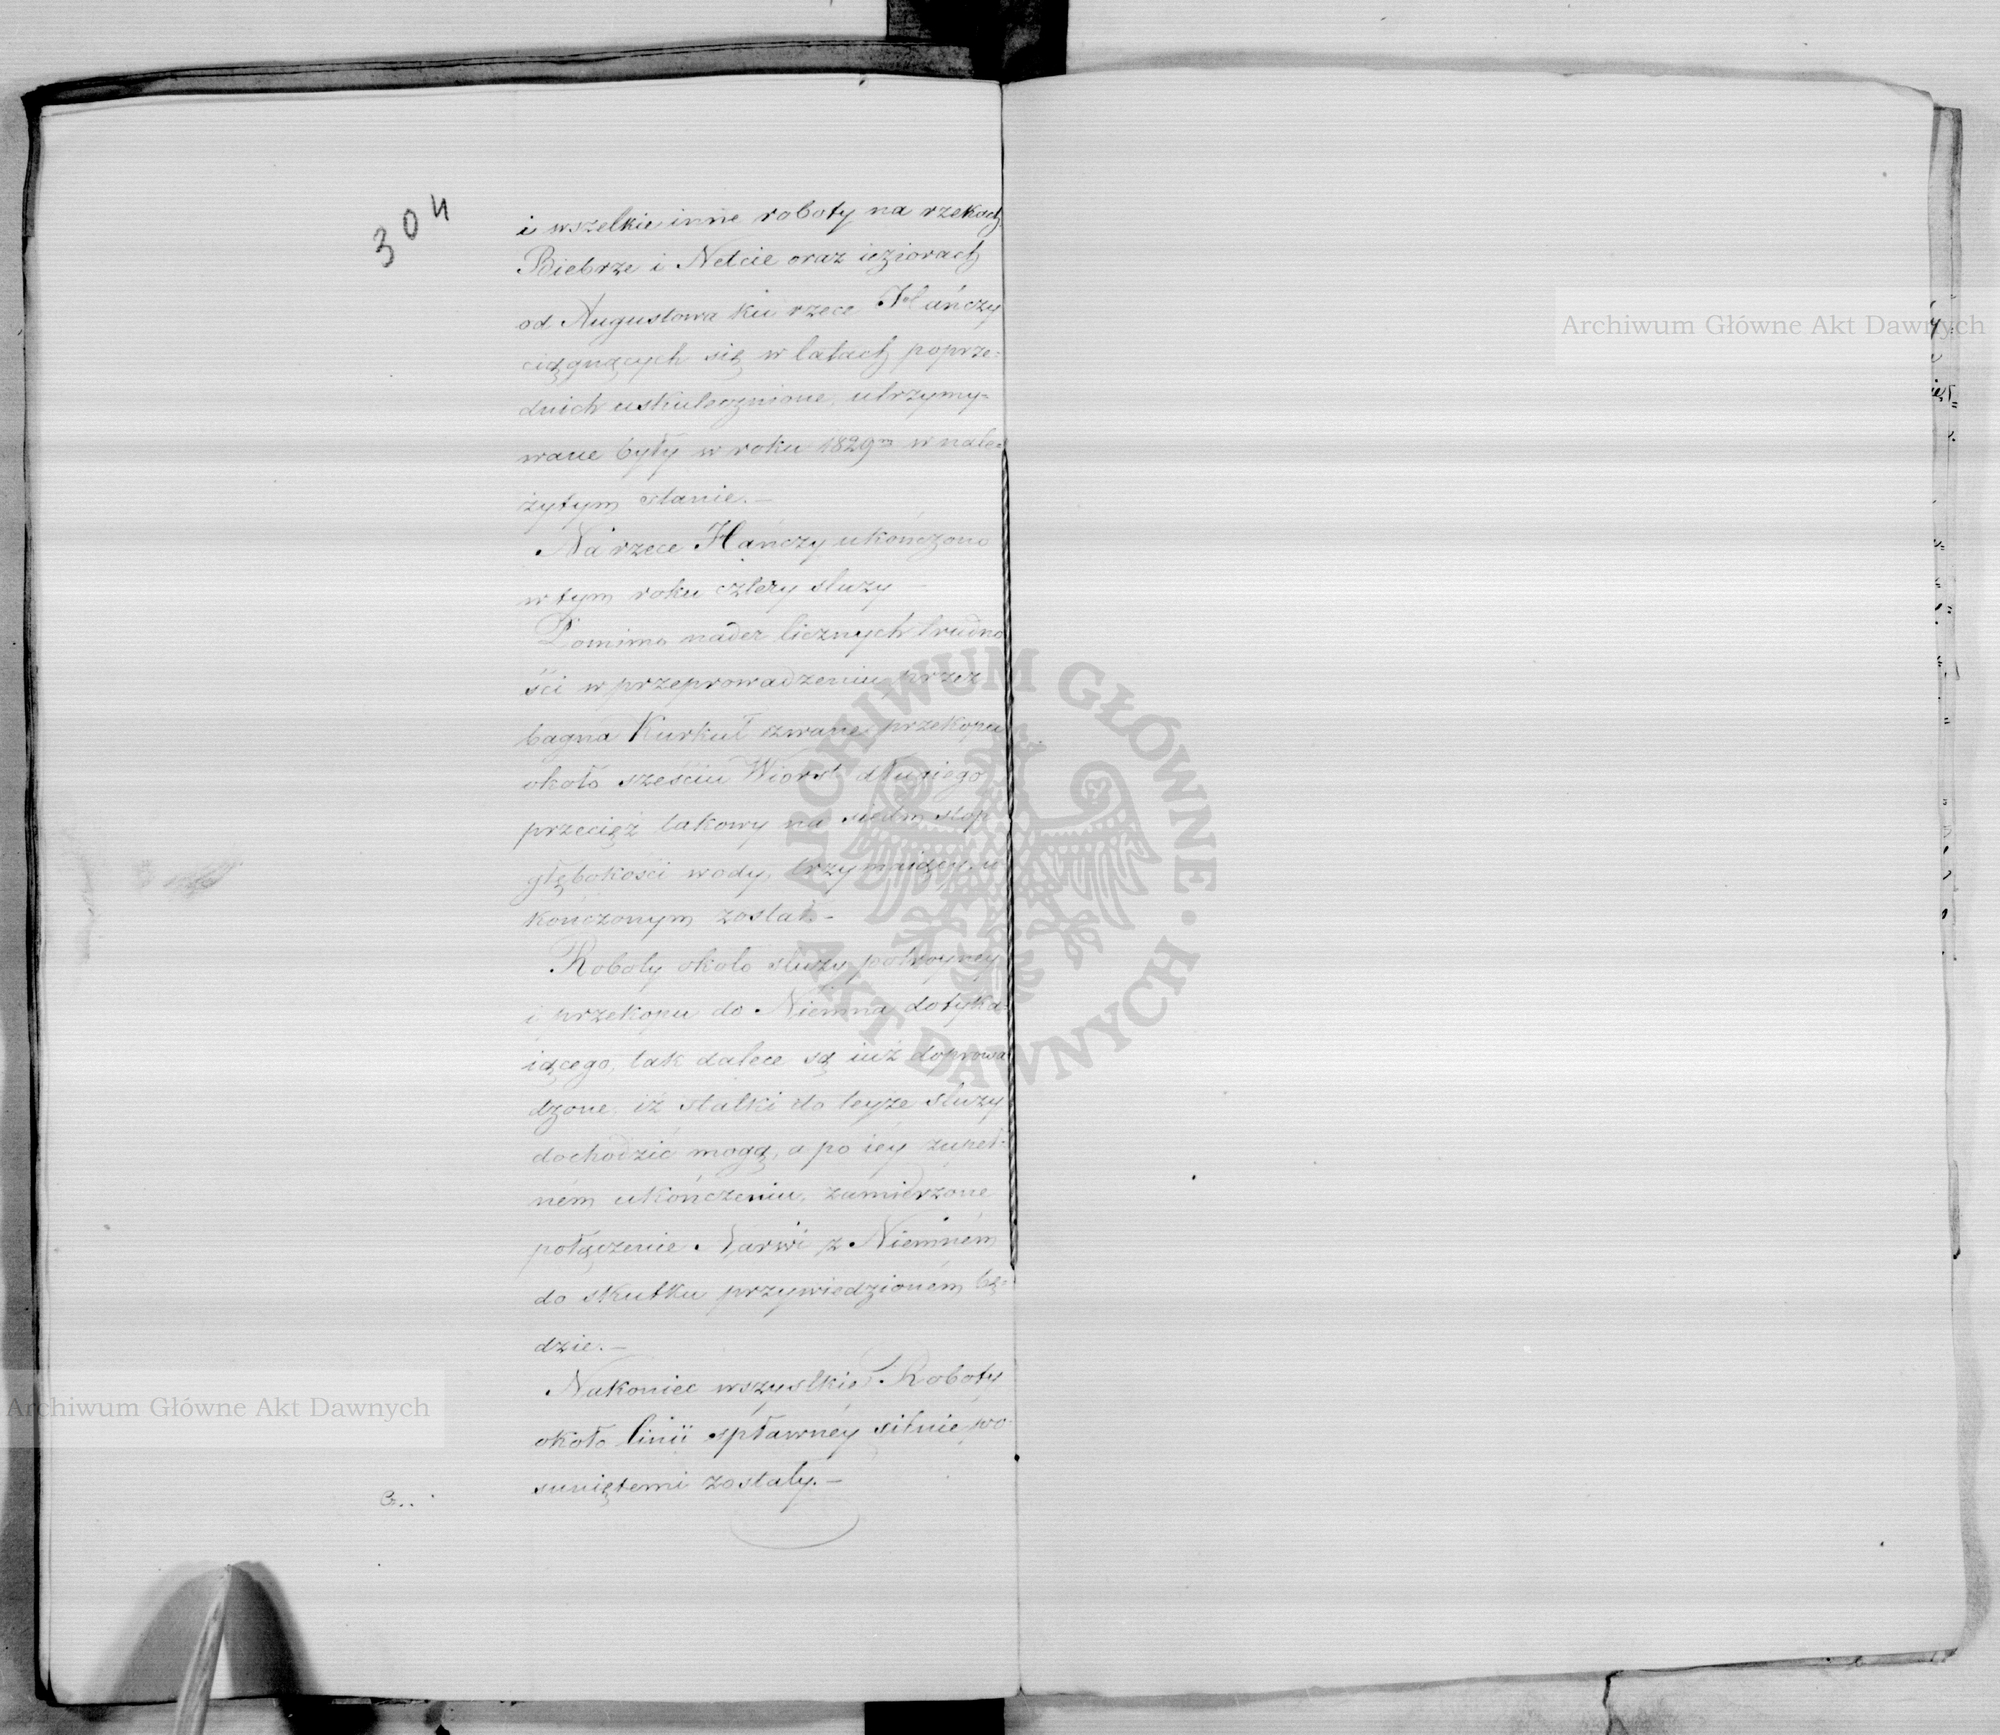 304
i wszelkie inne roboty na rzekach
Biebrze i Netcie oraz ieziorach
od Augustowa ku rzece Hańczy
ciągnących się w latach poprze=
dnich uskutecznione, utrzymy=
wane były w roku 1829m w nale=
żytym stanie.—
Na rzece Hańczy ukończono
w tym roku cztery sluzy —
Pomimo nader licznych trudno
ści w przeprowadzeniu przez
bagna Kurkuł zwane przekopu
około sześciu Wiorst długiego
przecięż takowy na siedm stop
głębokości wody, trzymaiący, u
kończonym został.—
Roboty około sluzy potroyney
i przekopu do Niemna dotyka=
iącego, tak dalece są iuż doprowa
dzone, iż statki do teyże sluzy
dochodzić mogą, a po iéy zupeł=
ném ukończeniu, zamierzone
połączenie Narwi z Niemném
do skutku przywiedzioném bę=
dzie.—
Nakoniec wszystkie Roboty
około linii spławnéy silnie po
suniętemi zostały.—
Archiwum Główne Akt Dawnych
Archiwum Główne Akt Dawnych
ARCHIWUM GŁÓWNE • AKT DAWNYCH